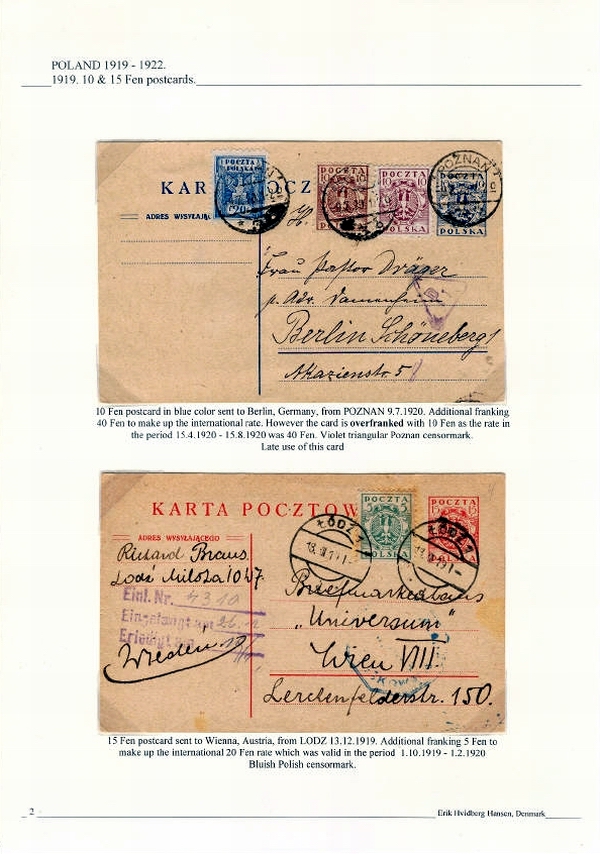 POLAND 1919 - 1922.
1919. 10 & 15 Fen postcards.
POCZTA
POLSKA
20
POCZTA
10 10
POCZTA
10 10
POLSKA
POZNAŃ
POCZTA
10
POLSKA
KAR OCZ
ADRES WYSYŁAJĄC
Frau Pastor Dräger
p. Adr. Damenheim
Berlin Schöneberg
Akazienstr. 5
10 Fen postcard in blue color sent to Berlin, Germany, from POZNAN 9.7.1920. Additional franking
40 Fen to make up the international rate. However the card is overfranked with 10 Fen as the rate in
the period 15.4.1920 - 15.8.1920 was 40 Fen. Violet triangular Poznan censormark.
Late use of this card
KARTA POCZTOW
POCZTA
5 5
POLSKA
POCZTA
15 15
ŁÓDŹ 1
ŁÓDŹ 1
ADRES WYSYŁAJĄCEGO
Richard Braus
Lodź Milsza 10
Einl. Nr. 4310
Eingelangt am
Erledigt am
Briefmarkenhaus
"Universum"
Wien VIII.
Lerchenfelderstr. 150.
15 Fen postcard sent to Wienna, Austria, from LODZ 13.12.1919. Additional franking 5 Fen to
make up the international 20 Fen rate which was valid in the period 1.10.1919 - 1.2.1920
Bluish Polish censormark.
2
Erik Hvidberg Hansen, Denmark